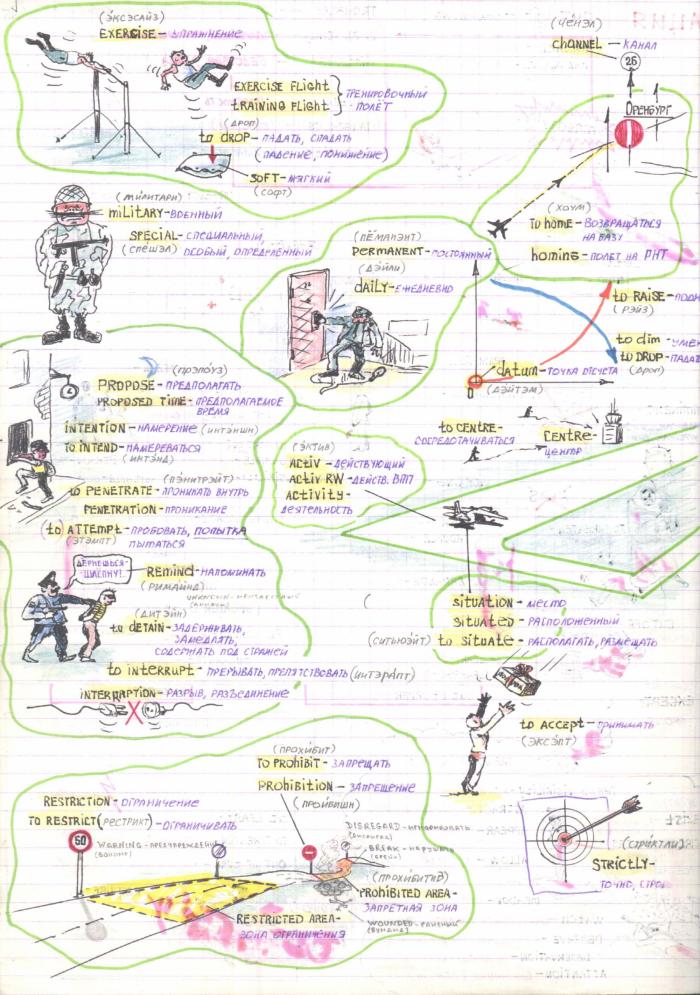 (ЭКСЭСАЙЗ)
EXERCISE - УПРАЖНЕНИЕ
EXERCISE FLIGHT
TRAINING FLIGHT
ТРЕНИРОВОЧНЫЙ
ПОЛЁТ
(ДРОП)
to DROP - ПАДАТЬ, СПАДАТЬ
(ПАДЕНИЕ, ПОНИЖЕНИЕ)
SOFT - МЯГКИЙ
(СОФТ)
(ЧЕНЭЛ)
CHANNEL - КАНАЛ
25
ОРЕНБУРГ
(ХОУМ)
TO HOME - ВОЗВРАЩАТЬСЯ
НА БАЗУ
homing - ПОЛЕТ НА РНТ
(МИЛИТАРИ)
MILITARY - ВОЕННЫЙ
SPECIAL - СПЕЦИАЛЬНЫЙ,
(СПЕШЭЛ) ОСОБЫЙ, ОПРЕДЕЛЁННЫЙ
(ПЁМАНЭНТ)
PERMANENT - ПОСТОЯННЫЙ
(ДЭЙЛИ)
DAILY - ЕЖЕДНЕВНО
to RAISE - ПОДН
(РЭЙЗ)
to dim - УМЕН
to DROP - ПАДАТ
(ДРОП)
datum - ТОЧКА ОТСЧЕТА
0 (ДЭЙТЭМ)
(ПРЭПОУЗ)
PROPOSE - ПРЕДПОЛАГАТЬ
PROPOSED TIME - ПРЕДПОЛАГАЕМОЕ
ВРЕМЯ
INTENTION - НАМЕРЕНИЕ (ИНТЭНШН)
TO INTEND - НАМЕРЕВАТЬСЯ
(ИНТЭНД)
(ПЭНИТРЭЙТ)
to PENETRATE - ПРОНИКАТЬ ВНУТРЬ
PENETRATION - ПРОНИКАНИЕ
(to ATTEMPT - ПРОБОВАТЬ, ПОПЫТКА
(ЭТЭМПТ) ПЫТАТЬСЯ
to CENTRE -
СОСРЕДОТАЧИВАТЬСЯ
CENTRE -
ЦЕНТР
(ЭКТИВ)
ACTIV - ДЕЙСТВУЮЩИЙ
ACTIV RW - ДЕЙСТВ. ВПП
ACTIVITY -
ДЕЯТЕЛЬНОСТЬ
ДЕРНЕШЬСЯ -
ШЛЕПНУ!..
REMIND - НАПОМИНАТЬ
(РИМАЙНД)
(ДИТЭЙН)
to DETAIN - ЗАДЕРЖИВАТЬ,
ЗАМЕДЛЯТЬ,
СОДЕРЖАТЬ ПОД СТРАЖЕЙ
to INTERRUPT - ПРЕРЫВАТЬ, ПРЕПЯТСТВОВАТЬ (ИНТЭРАПТ)
INTERRAPTION - РАЗРЫВ, РАЗЪЕДИНЕНИЕ
(
SITUATION - МЕСТО
SITUATED - РАСПОЛОЖЕННЫЙ
(СИТЬЮЭЙТ) to SITUATE - РАСПОЛАГАТЬ, РАЗМЕЩАТЬ
to ACCEPT - ПРИНИМАТЬ
(ЭКСЭПТ)
(ПРОХИБИТ)
TO PROHIBIT - ЗАПРЕЩАТЬ
PROHIBITION - ЗАПРЕЩЕНИЕ
(ПРОЙБИШН)
RESTRICTION - ОГРАНИЧЕНИЕ
TO RESTRICT (РЕСТРИКТ) - ОГРАНИЧИВАТЬ
50
WARNING - ПРЕДУПРЕЖДЕНИЕ
DISREGARD - ИГНОРИРОВАТЬ
BREAK - НАРУШАТЬ
(ПРОХИБИТИД)
PROHIBITED AREA -
ЗАПРЕТНАЯ ЗОНА
WOUNDED - РАНЕНЫЙ
(ВУНДИД)
RESTRICTED AREA -
ЗОНА ОГРАНИЧЕНИЯ
(СТРИКТЛИ)
STRICTLY -
ТОЧНО, СТРОГ